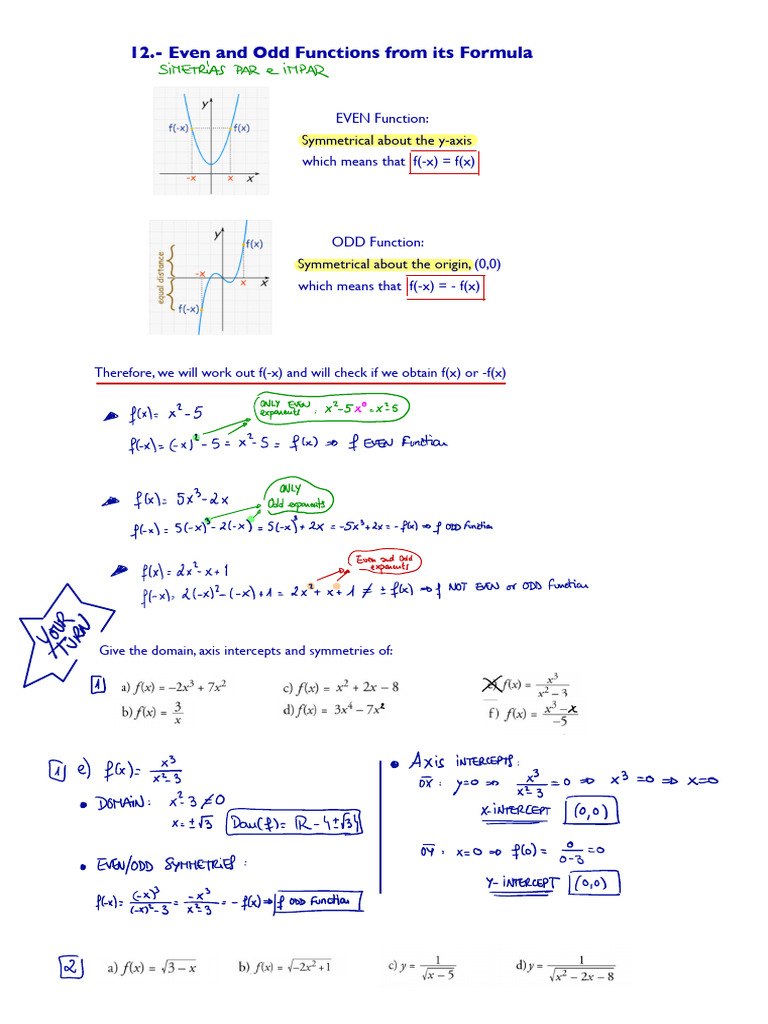 12.- Even and Odd Functions from its Formula
SIMETRÍAS PAR e IMPAR
y
f(-x) f(x)
-x x x
EVEN Function:
Symmetrical about the y-axis
which means that f(-x) = f(x)
y
f(x)
equal distance
-x
x x
f(-x)
ODD Function:
Symmetrical about the origin, (0,0)
which means that f(-x) = - f(x)
Therefore, we will work out f(-x) and will check if we obtain f(x) or -f(x)
f(x)= x²-5
ONLY EVEN exponents : x²-5x⁰=x²-5
f(-x)=(-x)²-5= x²-5 = f(x) ⇒ f EVEN Function
ONLY Odd exponents
f(x)= 5x³-2x
f(-x)= 5(-x)³-2(-x) = 5(-x)³+2x = -5x³+2x = -f(x) ⇒ f ODD function
Even and Odd exponents
f(x)= 2x²-x+1
f(-x)= 2(-x)²-(-x)+1 = 2x²+x+1 ≠ ± f(x) ⇒ f NOT EVEN or ODD Function
YOUR TURN
Give the domain, axis intercepts and symmetries of:
1 a) f(x) = –2x³ + 7x² c) f(x) = x² + 2x – 8 e) f(x) = x³/(x² – 3)
b) f(x) = 3/x d) f(x) = 3x⁴ – 7x² f) f(x) = (x³ – x)/–5
1 e) f(x)= x³/(x²-3)
• DOMAIN: x²-3≠0
x=±√3 Dom(f)= R-{±√3}
• EVEN/ODD SYMMETRIES:
f(-x)= (-x)³/((-x)²-3) = -x³/(x²-3) = -f(x) ⇒ f ODD Function
• AXIS INTERCEPTS:
OX: y=0 ⇒ x³/(x²-3) =0 ⇒ x³=0 ⇒ x=0
X-INTERCEPT (0,0)
OY: x=0 ⇒ f(0)= 0/(0-3) =0
Y-INTERCEPT (0,0)
2 a) f(x) = √(3 – x) b) f(x) = √(–2x² +1) c) y = 1/√(x – 5) d) y = 1/√(x² – 2x – 8)